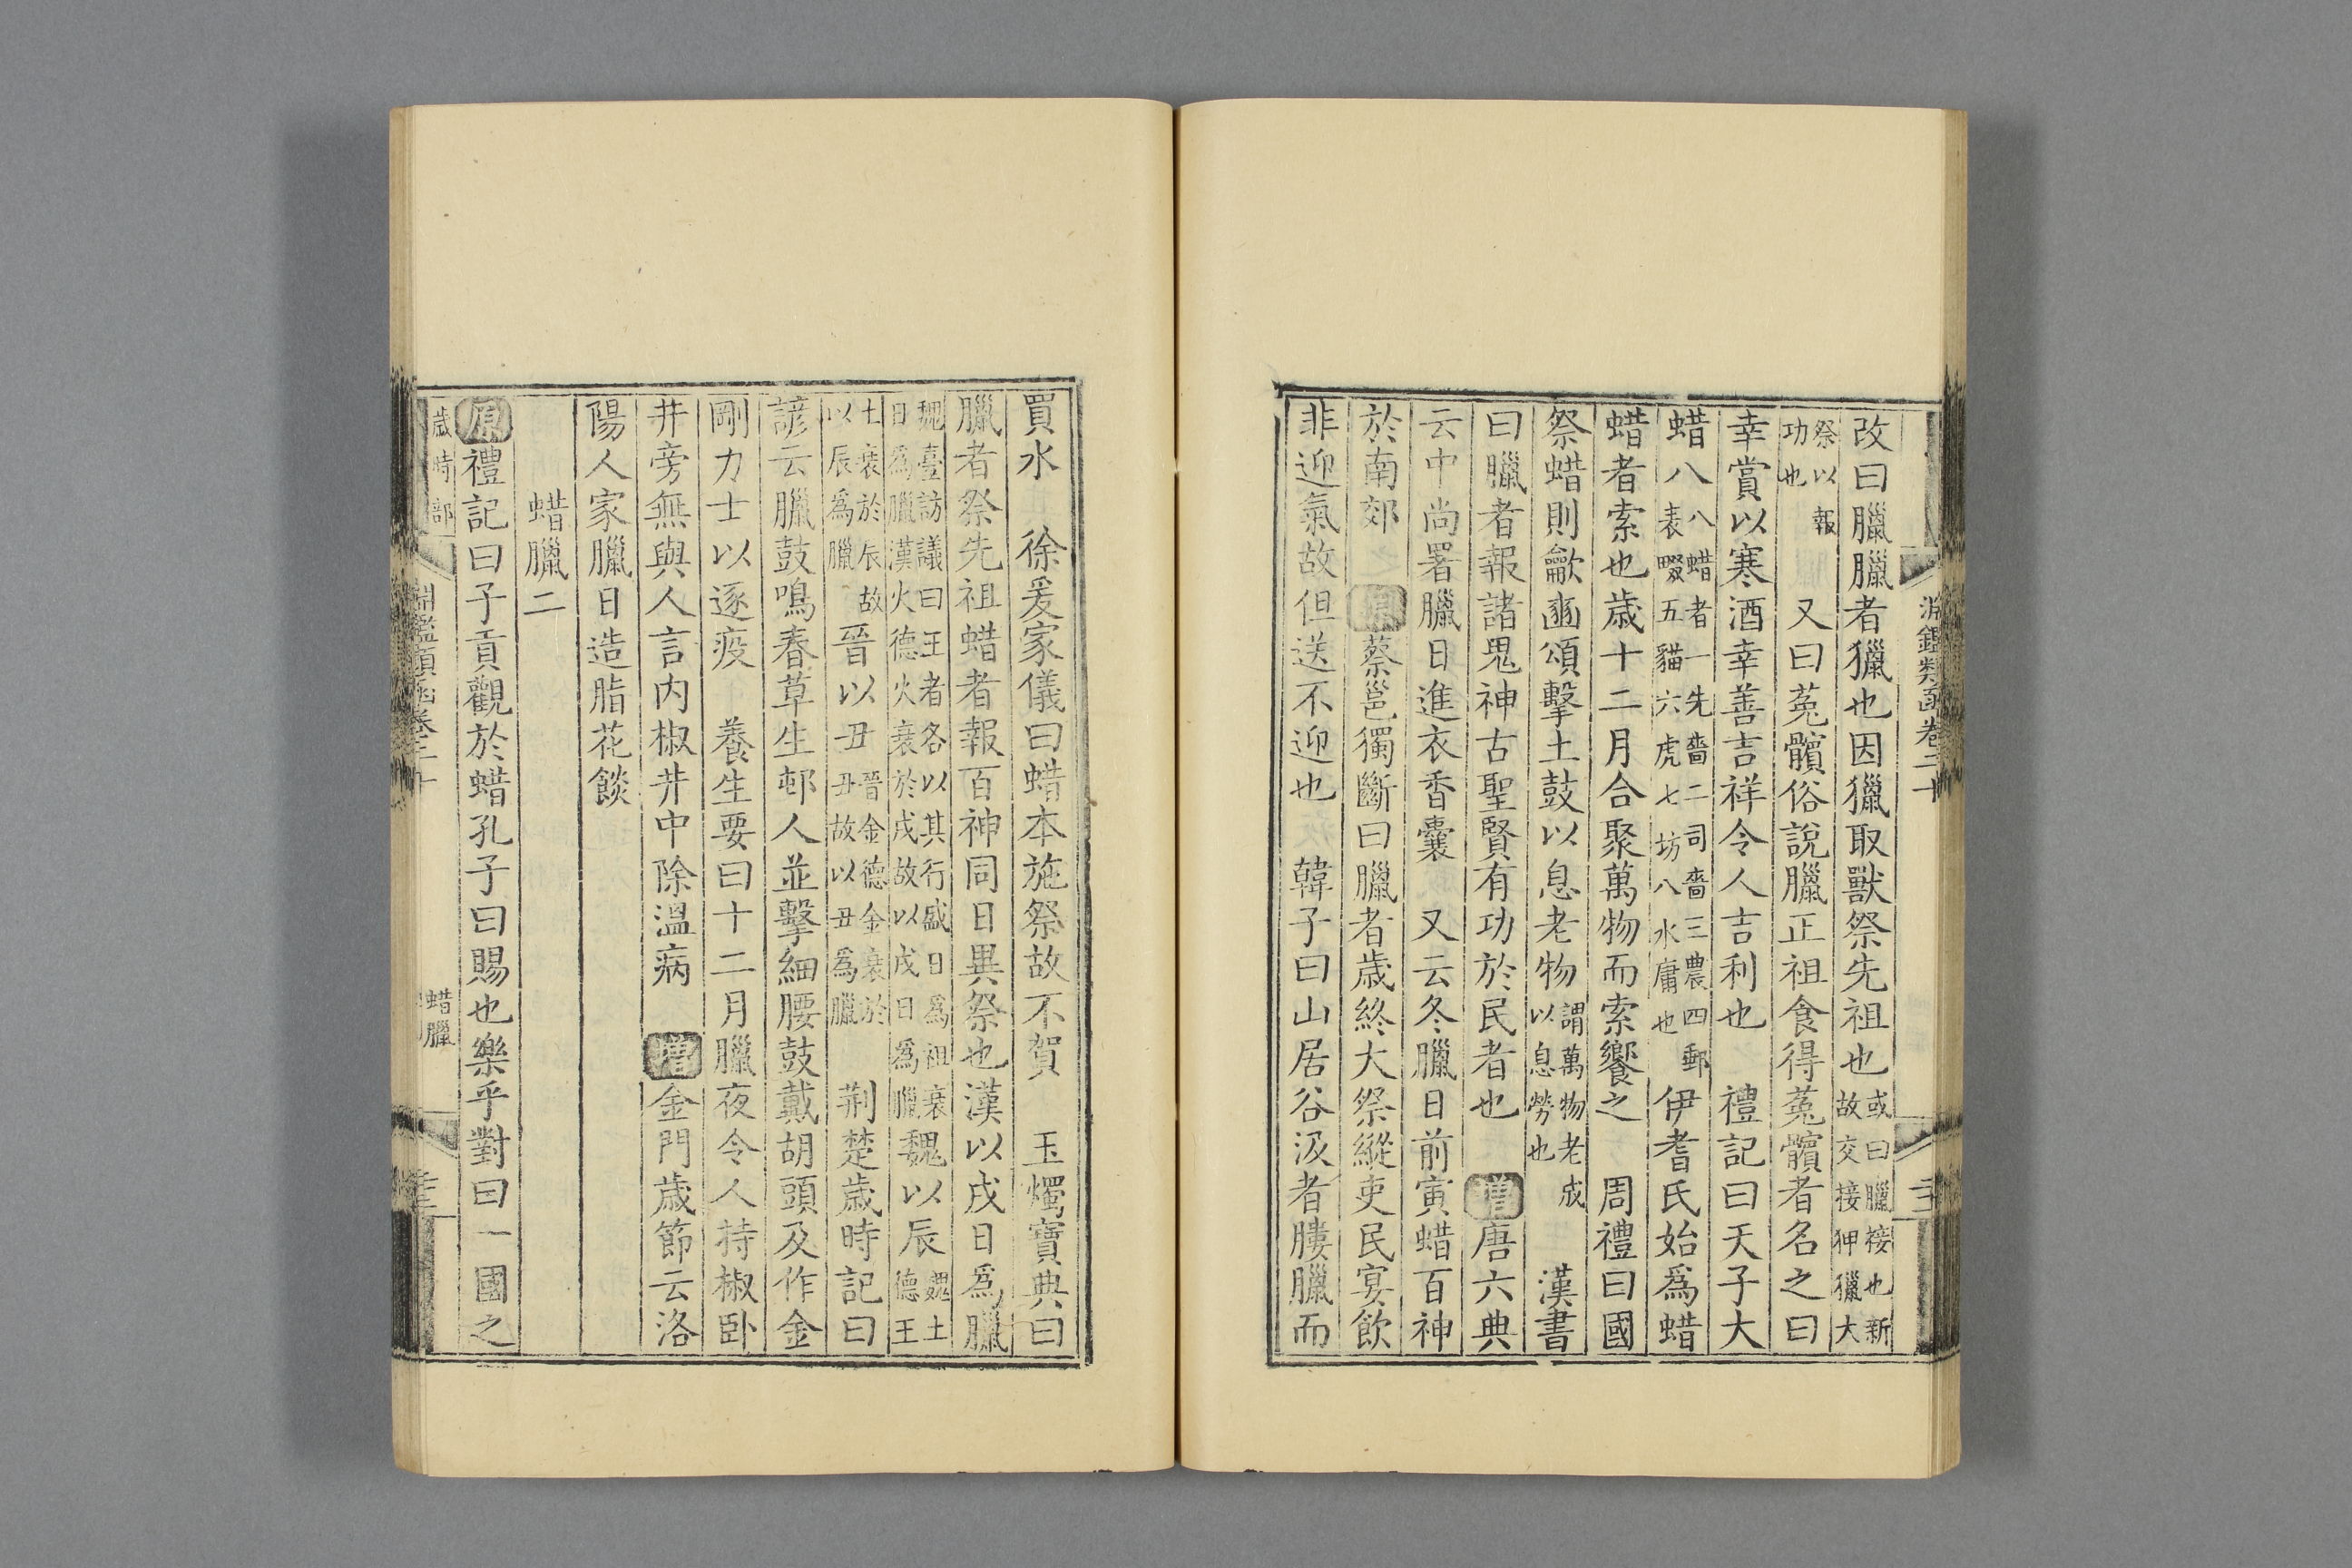 淵鑑類函卷二十
改曰臘臘者獵也因獵取獸祭先祖也或曰臘接也新故交接狎獵大
祭以報功也 又曰菟髕俗說臘正祖食得菟髕者名之曰
幸賞以寒酒幸善吉祥令人吉利也 禮記曰天子大
蜡八八蜡者一先嗇二司嗇三農四郵表畷五貓六虎七坊八水庸也伊耆氏始爲蜡
蜡者索也歲十二月合聚萬物而索饗之 周禮曰國
祭蜡則龡豳頌擊土鼓以息老物謂萬物老成以息勞也 漢書
曰臘者報諸鬼神古聖賢有功於民者也 增唐六典
云中尚署臘日進衣香囊 又云冬臘日前寅蜡百神
於南郊 原蔡邕獨斷曰臘者歲終大祭縱吏民宴飲
非迎氣故但送不迎也 韓子曰山居谷汲者膢臘而
買水 徐爰家儀曰蜡本施祭故不賀 玉燭寶典曰
臘者祭先祖蜡者報百神同日異祭也漢以戌日爲臘
魏臺訪議曰王者各以其行盛日爲祖衰日爲臘漢火德火衰於戌故以戌日爲臘魏以辰魏土德王
土衰於辰故以辰爲臘晉以丑晉金德金衰於丑故以丑爲臘 荆楚歲時記曰
諺云臘鼓鳴春草生邨人並擊細腰鼓戴胡頭及作金
剛力士以逐疫 養生要曰十二月臘夜令人持椒卧
井旁無與人言内椒井中除溫病 增金門歲節云洛
陽人家臘日造脂花餤
蜡臘二
原禮記曰子貢觀於蜡孔子曰賜也樂乎對曰一國之
歲時部 淵鑑類函卷二十 蜡臘